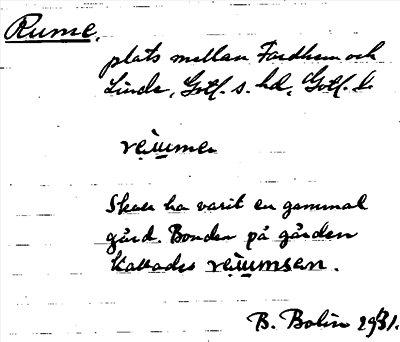 Rume.
plats mellan Fardhem och
Linde, Gotl. s. hd, Gotl. l.
rẹi̤ṳmer
Skall ha varit en gammal
gård. Bonden på gården
kallades rẹi̤ṳmsen.
B. Bolin 1931.